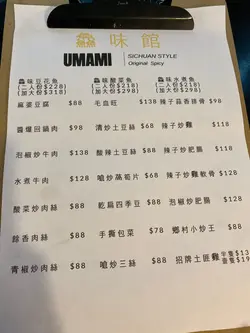 味館
UMAMI
SICHUAN STYLE
Original Spicy
味豆花魚
(二人份$228)
(加大份$318)
味酸菜魚
(二人份$218)
(加大份$318)
味水煮魚
(二人份$218)
(加大份$298)
麻婆豆腐 $88 毛血旺 $138 辣子蒜香排骨 $98
醬爆回鍋肉 $98 清炒土豆絲 $68 辣子炒雞 $118
泡椒炒牛肉 $138 酸辣土豆絲 $88 辣子炒蝦 $118
水煮牛肉 $128 嗆炒萵荀片 $68 辣子炒雞軟骨 $128
酸菜炒肉絲 $88 乾扁四季豆 $88 泡椒炒肥腸 $128
餘香肉絲 $88 手撕包菜 $78 鄉村小炒王 $88
青椒炒肉絲 $88 嗆炒三絲 $88 招牌土匪雞